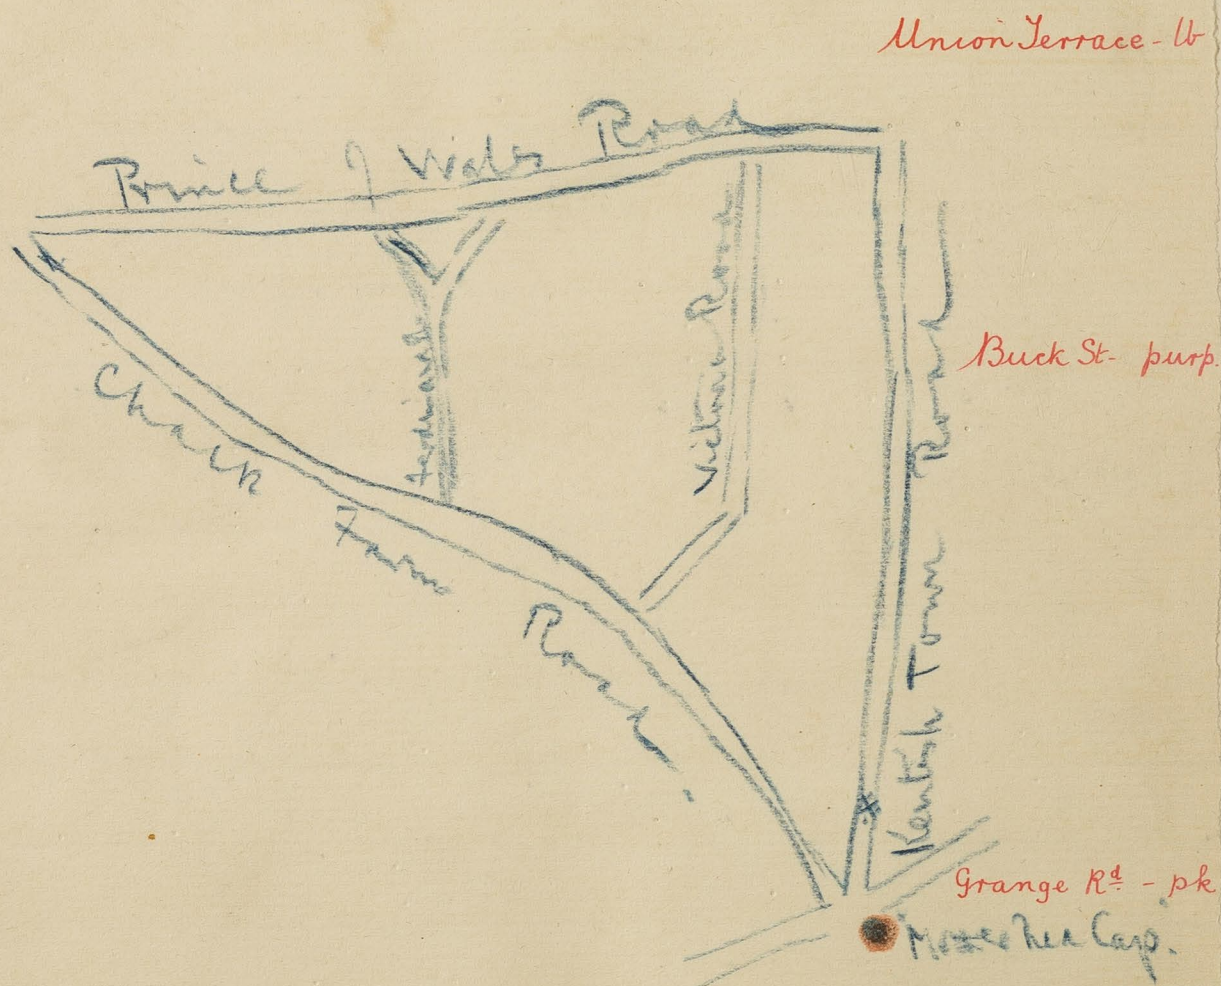 Union Terrace - lb
Prince of Wales Road
Buck St - purp.
Ferdinand
Victoria Road
Kentish Town Road
Chalk Farm Road
Grange Rd - pk
Mother Red Cap.